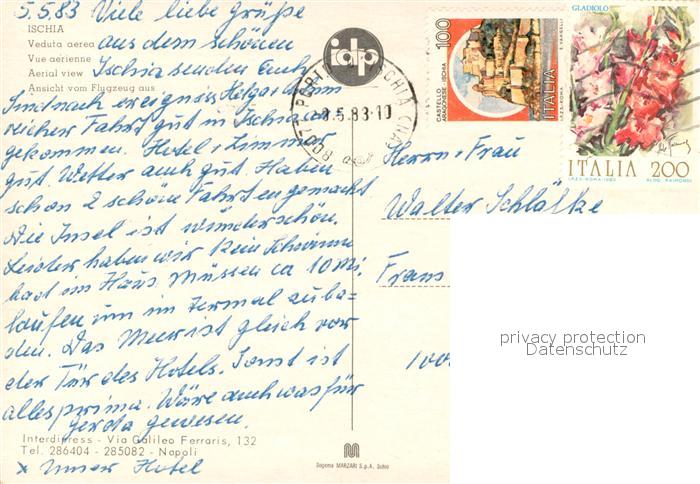 5.5.83 Viele liebe Grüße
ISCHIA
Veduta aerea
aus dem schönen
Vue aerienne
Aerial view
Ischia senden Euch
Ansicht vom Flugzeug aus
Helga
Sind nach ereignis
reicher Fahrt gut in Ischia an
gekommen. Hotel u. Zimmer
gut. Wetter auch gut. Haben
schon 2 schöne Fahrten gemacht
Die Insel ist wunderschön.
Leider haben wir kein Schwimm
bad im Haus. Müssen ca 10 Mi.
laufen um im Termal zu ba-
den. Das Meer ist gleich vor
der Tür des Hotels. Sonst ist
alles prima. Wäre auch was für
Gerda gewesen.
Interdipress - Via Galileo Ferraris, 132
Tel. 286404 - 285082 - Napoli
x unser Hotel
idp
.5.83-10
100
CASTELLO
ARAGONESE - ISCHIA
ITALIA
GLADIOLO
ITALIA 200
I.P.Z.S.-ROMA-1982 ALDO RAIMONDI
Herrn u. Frau
Walter Schlätke
Frans
100
privacy protection
Datenschutz
Sagoma MARZARI S.p.A. Schio